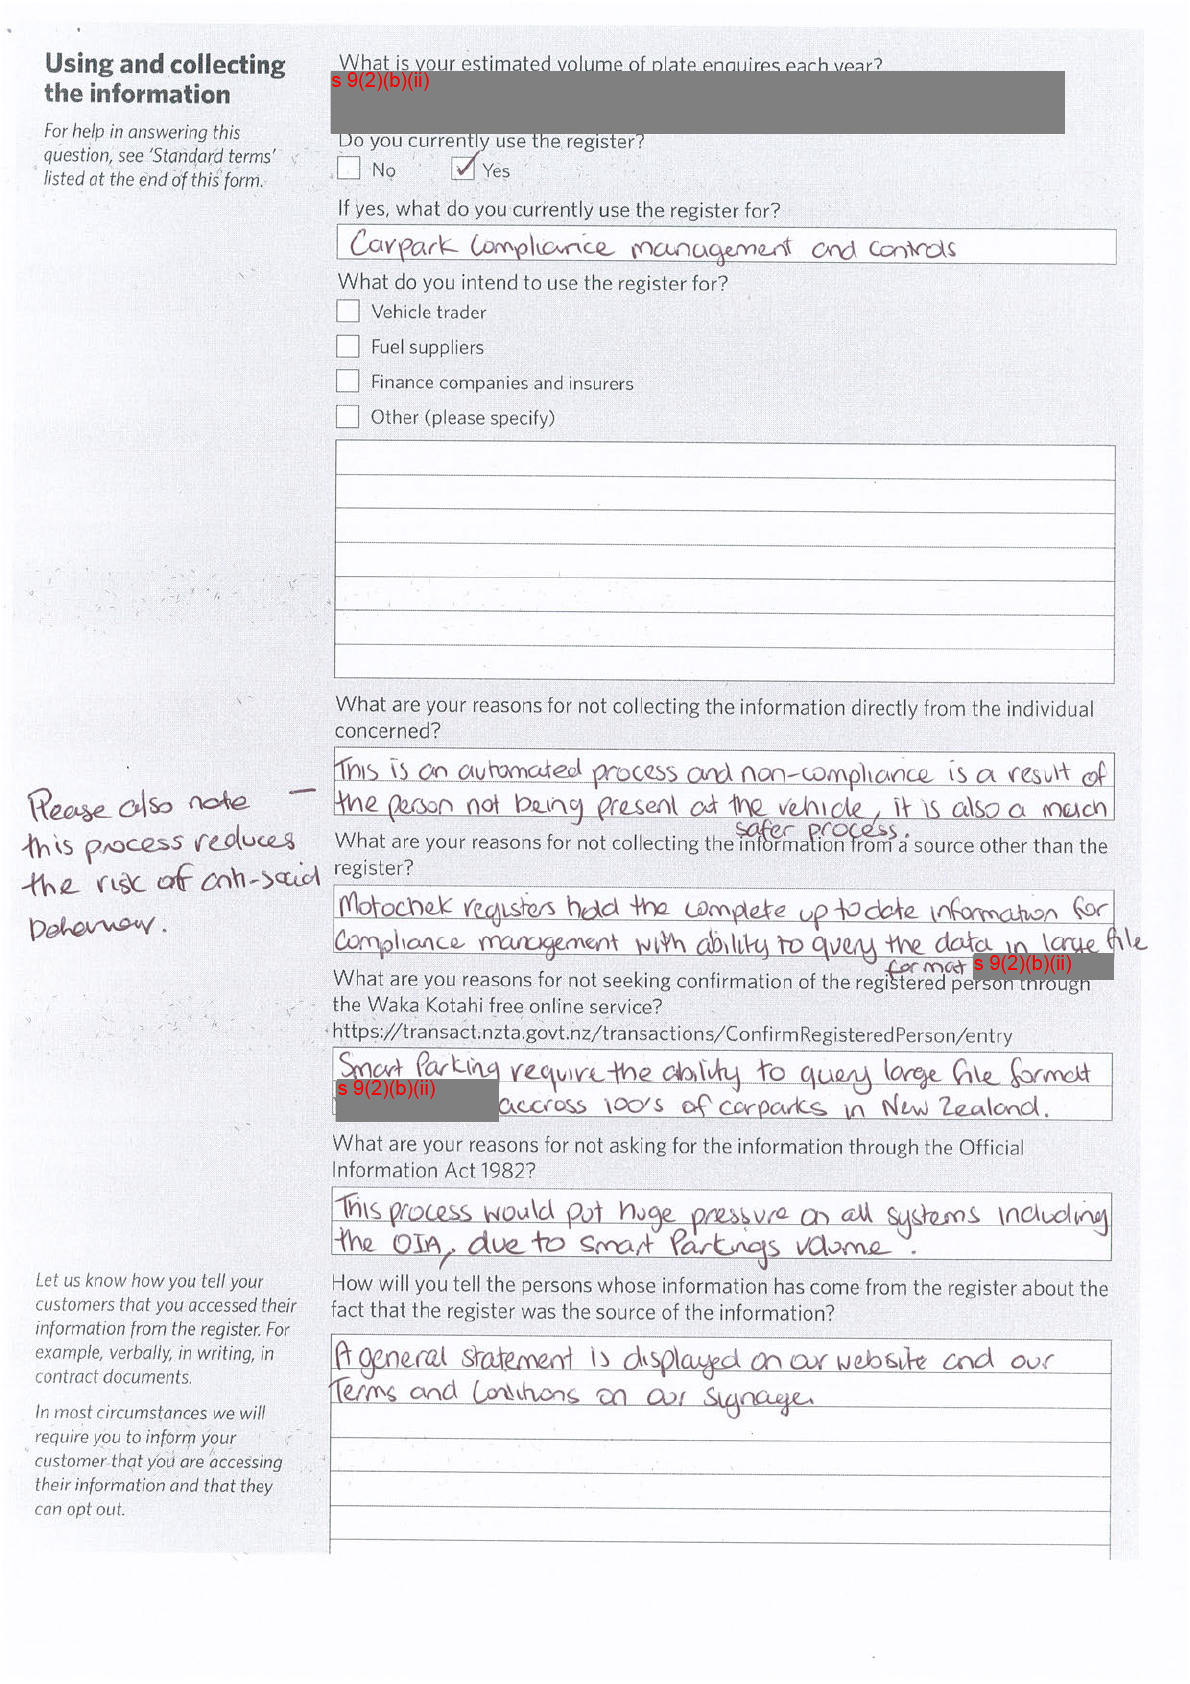 Using and collecting
the information
For help in answering this
question, see 'Standard terms'
listed at the end of this form.
What is your estimated volume of plate enquires each year?
s 9(2)(b)(ii)
Do you currently use the register?
No Yes
If yes, what do you currently use the register for?
Carpark Compliance management and controls
What do you intend to use the register for?
Vehicle trader
Fuel suppliers
Finance companies and insurers
Other (please specify)
What are your reasons for not collecting the information directly from the individual
concerned?
This is an automated process and non-compliance is a result of
the person not being present at the vehicle, it is also a much
safer process.
Please also note —
this process reduces
the risk of anti-social
behaviour.
What are your reasons for not collecting the information from a source other than the
register?
Motochek registers hold the complete up to date information for
Compliance management with ability to query the data in large file
format s 9(2)(b)(ii)
What are you reasons for not seeking confirmation of the registered person through
the Waka Kotahi free online service?
https://transact.nzta.govt.nz/transactions/ConfirmRegisteredPerson/entry
Smart Parking require the ability to query large file format
s 9(2)(b)(ii) accross 100's of carparks in New Zealand.
What are your reasons for not asking for the information through the Official
Information Act 1982?
This process would put huge pressure on all systems including
the OIA, due to Smart Parkings volume.
Let us know how you tell your
customers that you accessed their
information from the register. For
example, verbally, in writing, in
contract documents.
In most circumstances we will
require you to inform your
customer that you are accessing
their information and that they
can opt out.
How will you tell the persons whose information has come from the register about the
fact that the register was the source of the information?
A general statement is displayed on our website and our
Terms and Conditions on our signage.